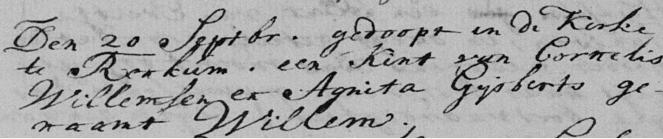 Den 20 Septbr. gedoopt in de Kerke
te Renkum. een Kint van Cornelis
Willemsen en Agnita Gijsberts ge-
naamt Willem.